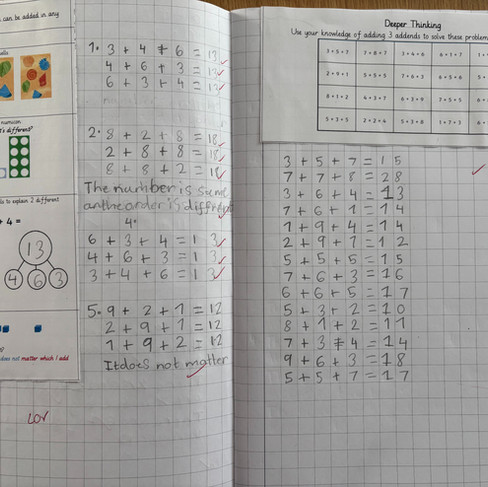 can be added in any
numicon.
different?
to explain 2 different
4 =
13
4 6 3
does not matter which I add
1. 3 + 4 + 6 = 13
4 + 6 + 3 = 13
6 + 3 + 4 = 13
2. 8 + 2 + 8 = 18
2 + 8 + 8 = 18
8 + 8 + 2 = 18
The number is
the order is
4.
6 + 3 + 4 = 13
4 + 6 + 3 = 13
3 + 4 + 6 = 13
5. 9 + 2 + 1 = 12
2 + 9 + 1 = 12
1 + 9 + 2 = 12
It does not matter
Deeper Thinking
Use your knowledge of adding 3 addends to solve these problem
3 + 5 + 7 7 + 8 + 7 3 + 4 + 6 6 + 1 + 7
2 + 9 + 1 5 + 5 + 5 7 + 6 + 3 6 + 5 + 6
8 + 1 + 2 4 + 3 + 7 6 + 3 + 9 7 + 5 + 5
5 + 3 + 5 2 + 2 + 4 5 + 3 + 8 1 + 7 + 3
3 + 5 + 7 = 15
7 + 7 + 8 = 28
3 + 6 + 4 = 13
7 + 6 + 1 = 14
1 + 9 + 4 = 14
2 + 9 + 1 = 12
5 + 5 + 5 = 15
7 + 6 + 3 = 16
6 + 6 + 5 = 17
5 + 3 + 2 = 10
8 + 1 + 2 = 11
7 + 3 + 4 = 14
9 + 6 + 3 = 18
5 + 5 + 7 = 17